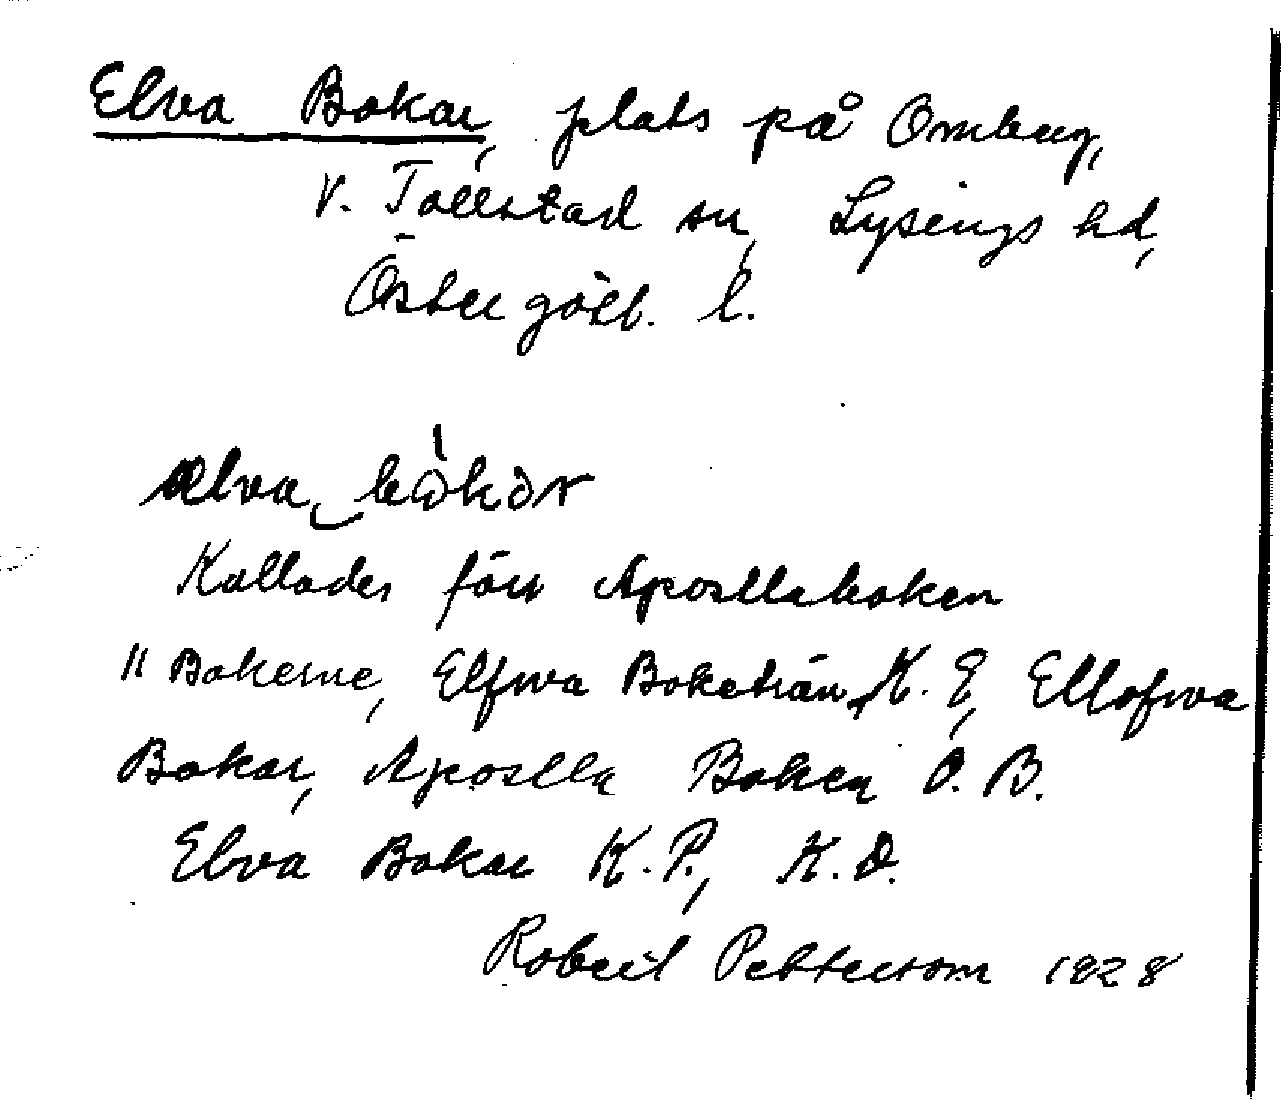 Elva Bokar, plats på Omberg,
V. Tollstad sn, Lysings hd,
Östergötl. l.
ælva bökòr
Kallades förr Apostlaboken
11 Bokerne, Elfwa Boketrän, K. E, Ellofwa
Bokar, Apostla Boken O. B.
Elva Bokar K. P., K. D.
Robert Pettersson 1928